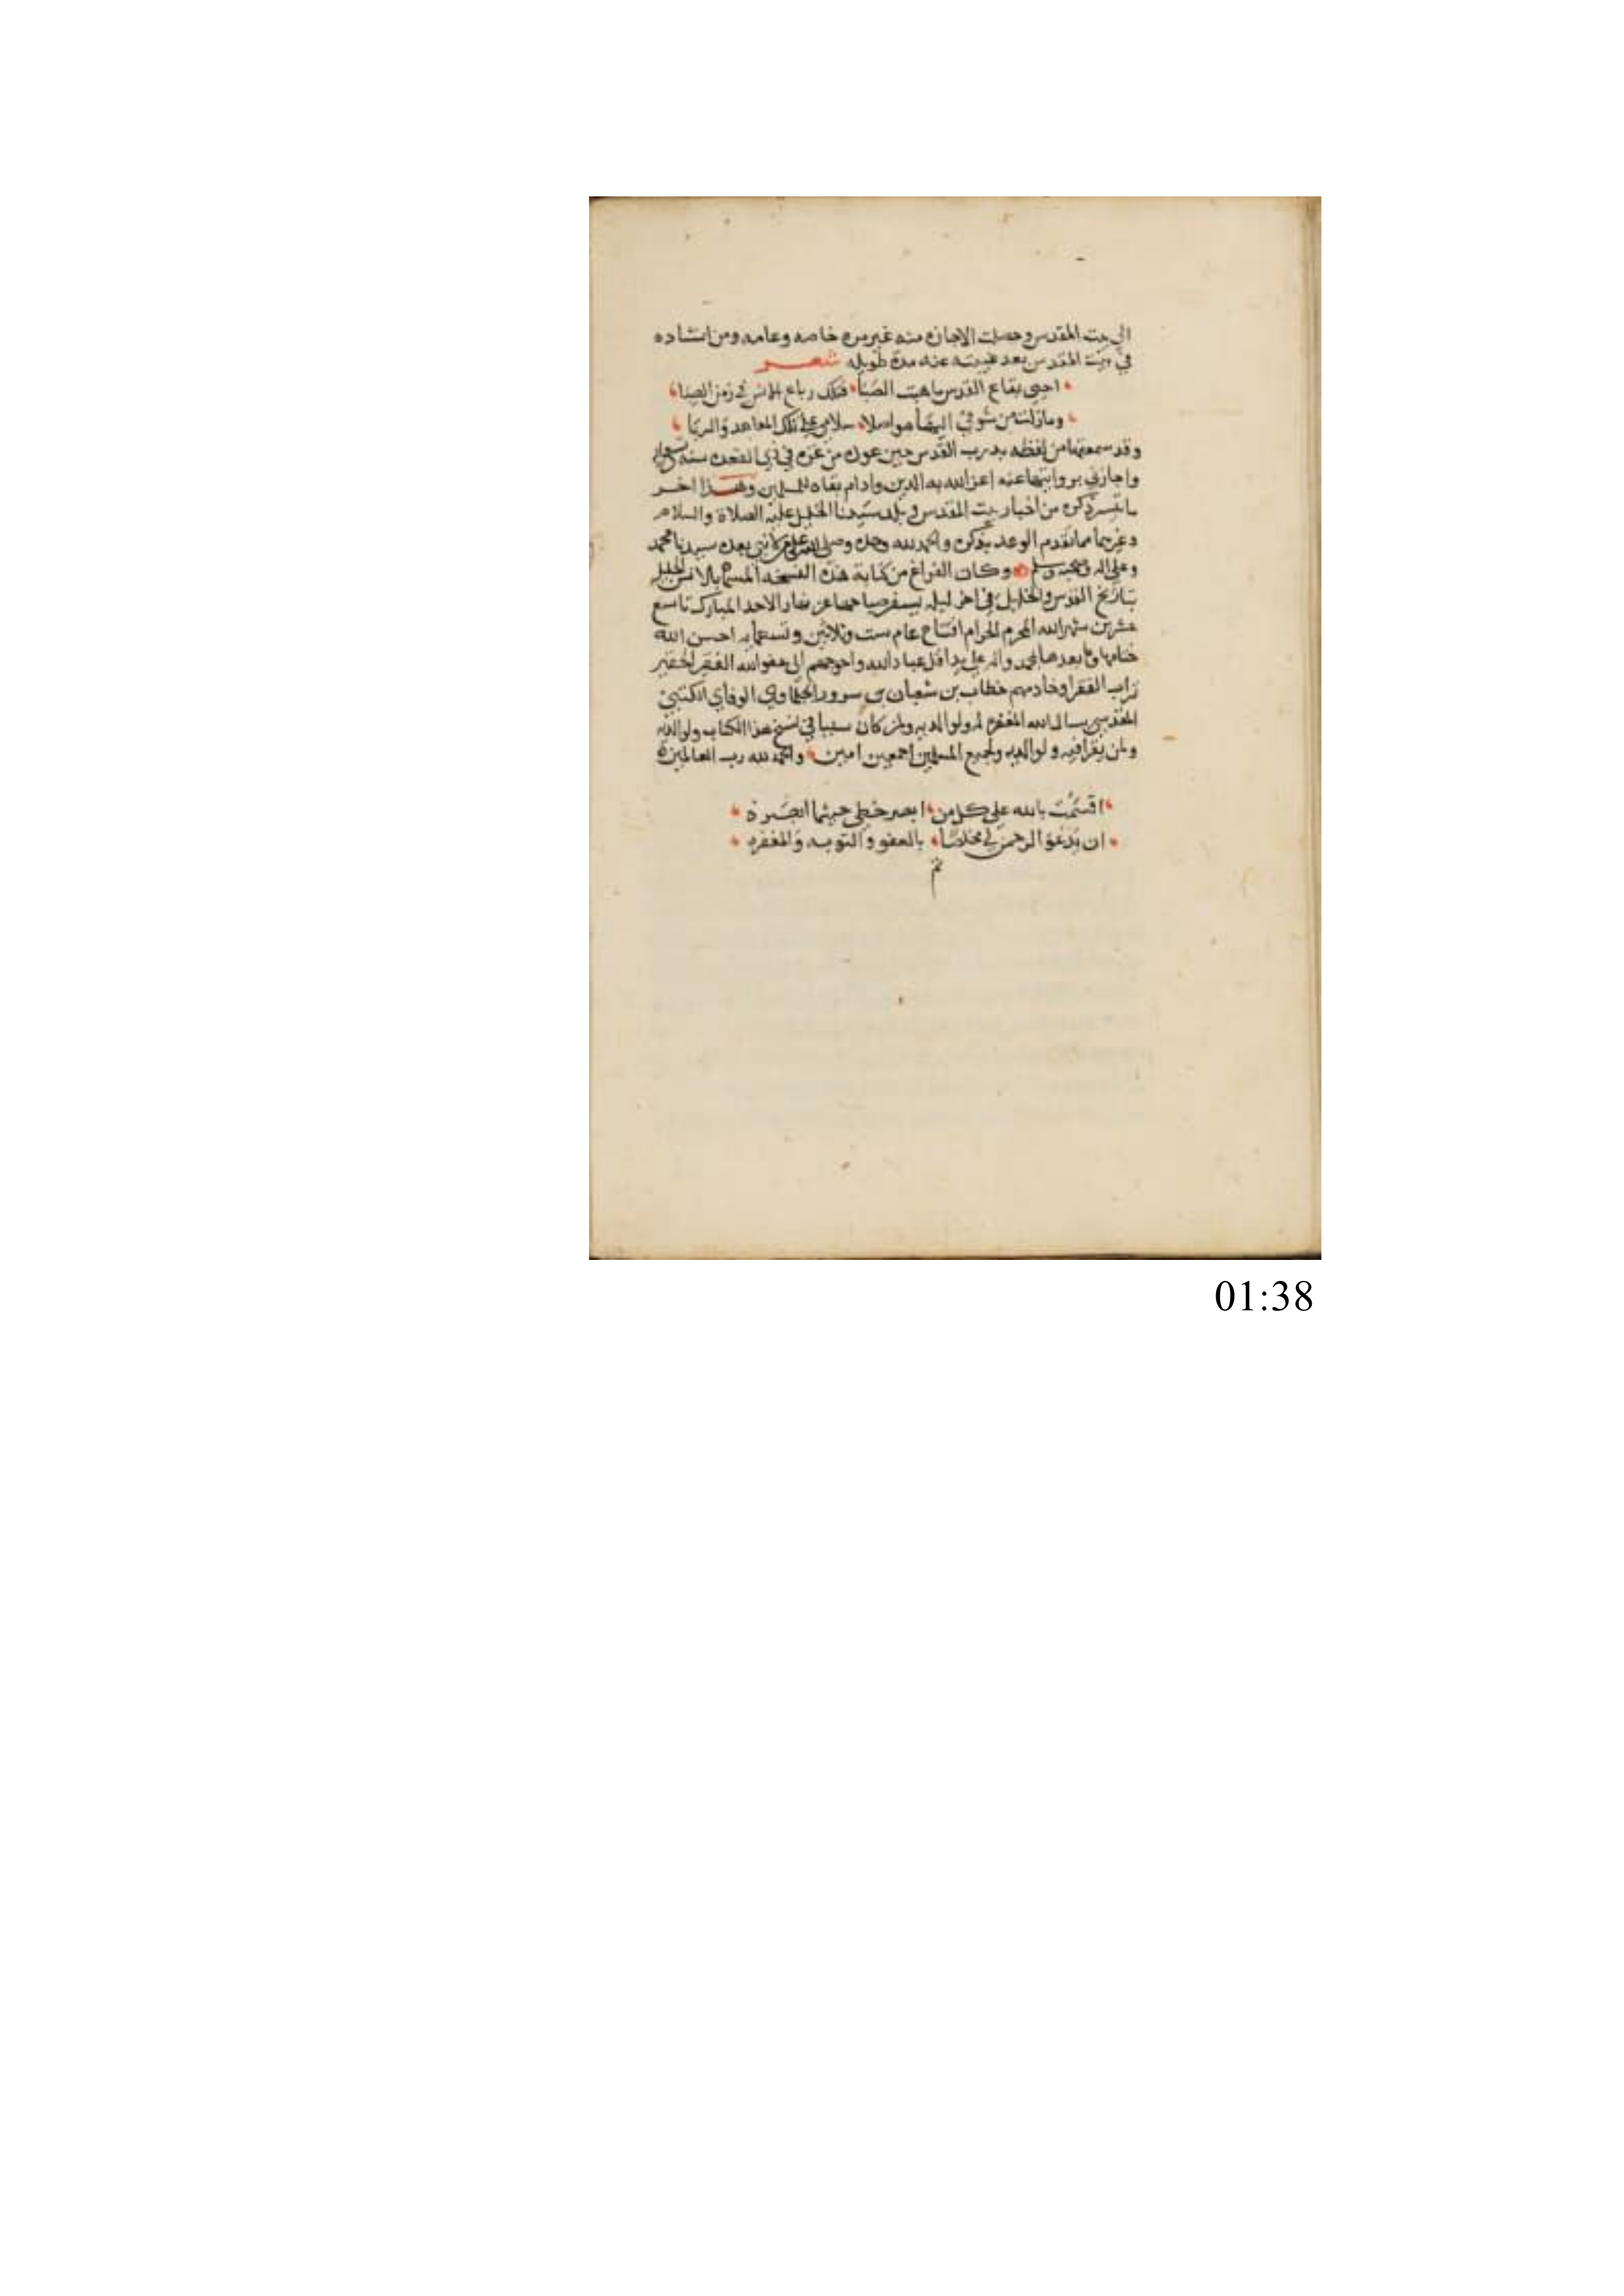 الى بيت المقدس وحصلت الاجازه منه غير مره خاصه وعامه ومن انشاده
في بيت المقدس بعد غيبته عنه مدة طويله شعر
احيى بقاع القدس ما هبت الصبا فتلك رباع الانس في زمن الصبا
وما زلت من شوقي اليها مواصلا سلامي على تلك المعاهد والربا
وقد سمعتها من لفظه بدرب القدس حين عوده من غزه في ذي القعده سنه
واجازني بروايتها عنه اعز الله به الدين وادام بقاه للمسلمين وهذا اخر
ما تيسر ذكره من اخبار بيت المقدس وبلد سيدنا الخليل عليه الصلاة والسلام
وغيرهما مما تقدم الوعد بذكره والحمد لله وحده وصلى الله على من لا نبي بعده سيدنا محمد
وعلى اله وصحبه وسلم وكان الفراغ من كتابة هذه النسخه المسماه بالانس الجليل
بتاريخ القدس والخليل في اخر ليله يسفر صباحها عن نهار الاحد المبارك تاسع
عشرين شهر الله المحرم الحرام افتتاح عام ست وثلاثين وتسعمايه احسن الله
ختامها وما بعدها بمحمد واله على يد اقل عباد الله واحوجهم الى عفو الله الفقير الحقير
تراب الفقرا وخادمهم خطاب بن شعبان بن سرور الوفاي الكتبي
المقدسي يسال الله المغفره له ولوالديه ولمن كان سببا في نسخ هذا الكتاب ولوالديه
ولمن يقرا فيه ولوالديه ولجميع المسلمين اجمعين امين والحمد لله رب العالمين
اقسمت بالله على كل من ابصر خطي حيثما ابصره
ان يدعو الرحمن لي مخلصا بالعفو والتوبه والمغفره
تم
01:38